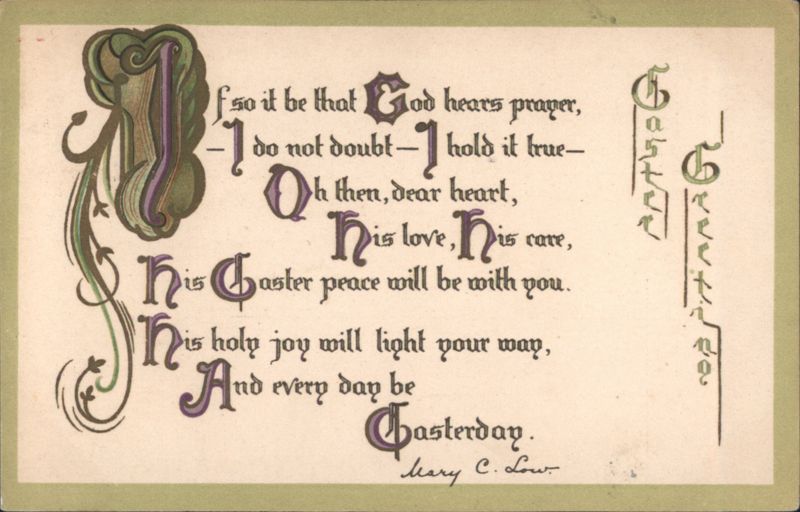 If so it be that God hears prayer,
—I do not doubt—I hold it true—
Oh then, dear heart,
His love, His care,
His Easter peace will be with you.
His holy joy will light your way,
And every day be
Easterday.
Mary C. Low.
Easter
Greetings